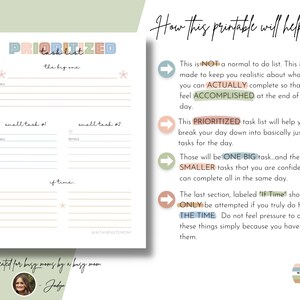 How this printable will help
PRIORITIZED
task list
the big one
small task #1
small task #2
if time
This is NOT a normal to do list. This i
made to keep you realistic about wha
you can ACTUALLY complete so tha
feel ACCOMPLISHED at the end of
day.
This PRIORITIZED task list will help y
break your day down into basically jus
tasks for the day.
Those will be ONE BIG task..and the
SMALLER tasks that you are confide
can complete all in the same day.
The last section, labeled "If Time" sho
ONLY be attempted if you truly do h
THE TIME. Do not feel pressure to c
these things simply because you have
them.
eated for busy moms by a busy mom